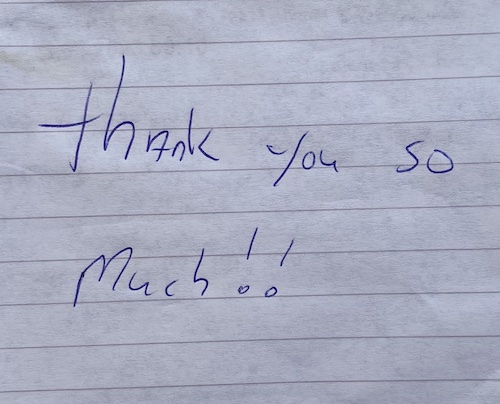 Thank you so
Much!!